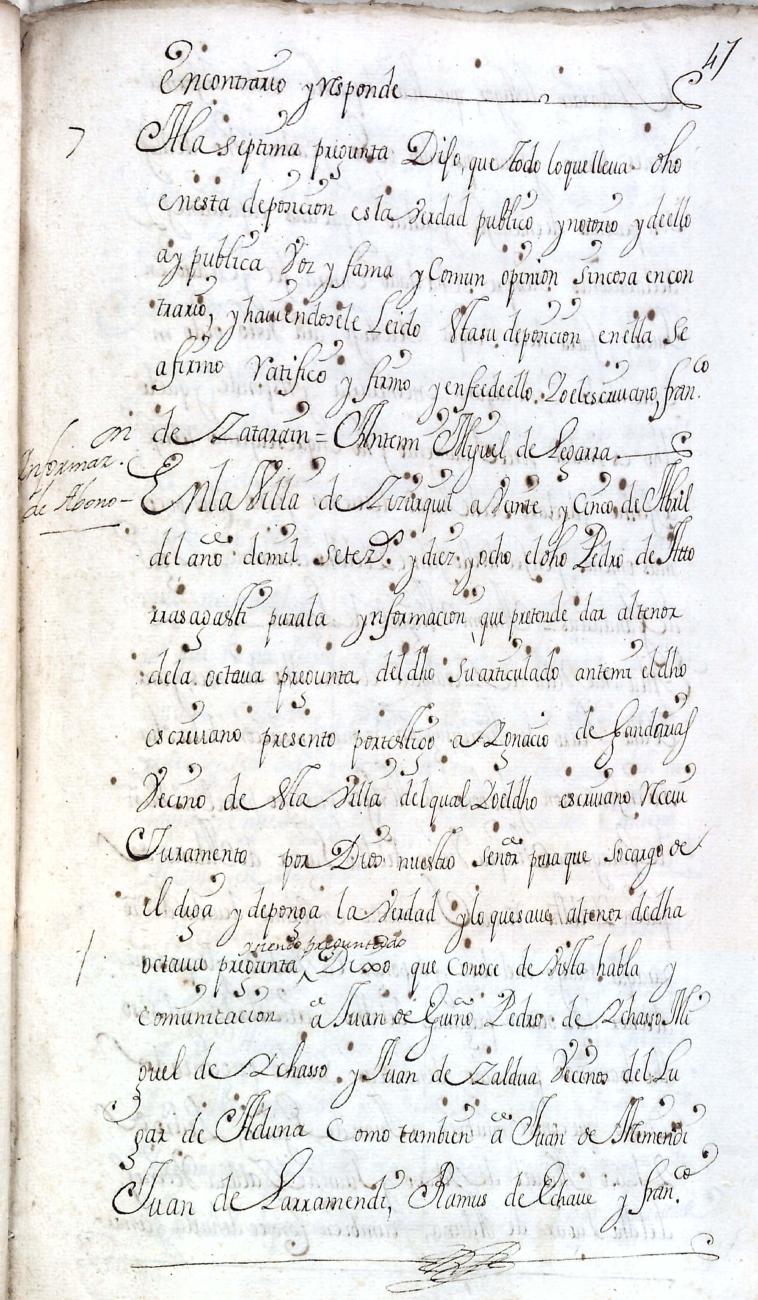 47
en contrario y responde
7 A la septima pregunta Dijo, que todo lo que lleva dho
en esta deposicion es la Verdad publico y notorio y de ello
ay publica Voz y fama y Comun opinion sin cosa en con
trario, y haviendosele Leido esta su deposicion en ella se
afirmo ratifico y firmo y en fee de ello Yo el escriuano, fran.co
de Zatarain = Antemi Miguel de Legarra.
Informaz.on
de Abono
En la Villa de Zizurquil a Veinte y Cinco de Abril
del año de mil setez.s y diez y ocho el dho Pedro de Atto
rrasagasti para la ynformacion que pretende dar al tenor
de la octava pregunta del dho su articulado antemi el dho
escriuano presento por testigo a Ygnacio de Gandaras
Vecino de esta Villa del qual Yo el dho escriuano receui
Juramento por Dios nuestro señor para que so cargo de
el diga y deponga la Verdad y lo que saue al tenor de dha
octaua pregunta, y siendo preguntado Dixo que Conoce de Vista habla y
comunicacion a Juan de Pedro de Echasso Mi
guel de Echasso y Juan de Zaldua Vecinos del Lu
gar de Aduna Como tambien a Juan de Amendi
Juan de Larramendi, Ramus de Echaue y fran.co